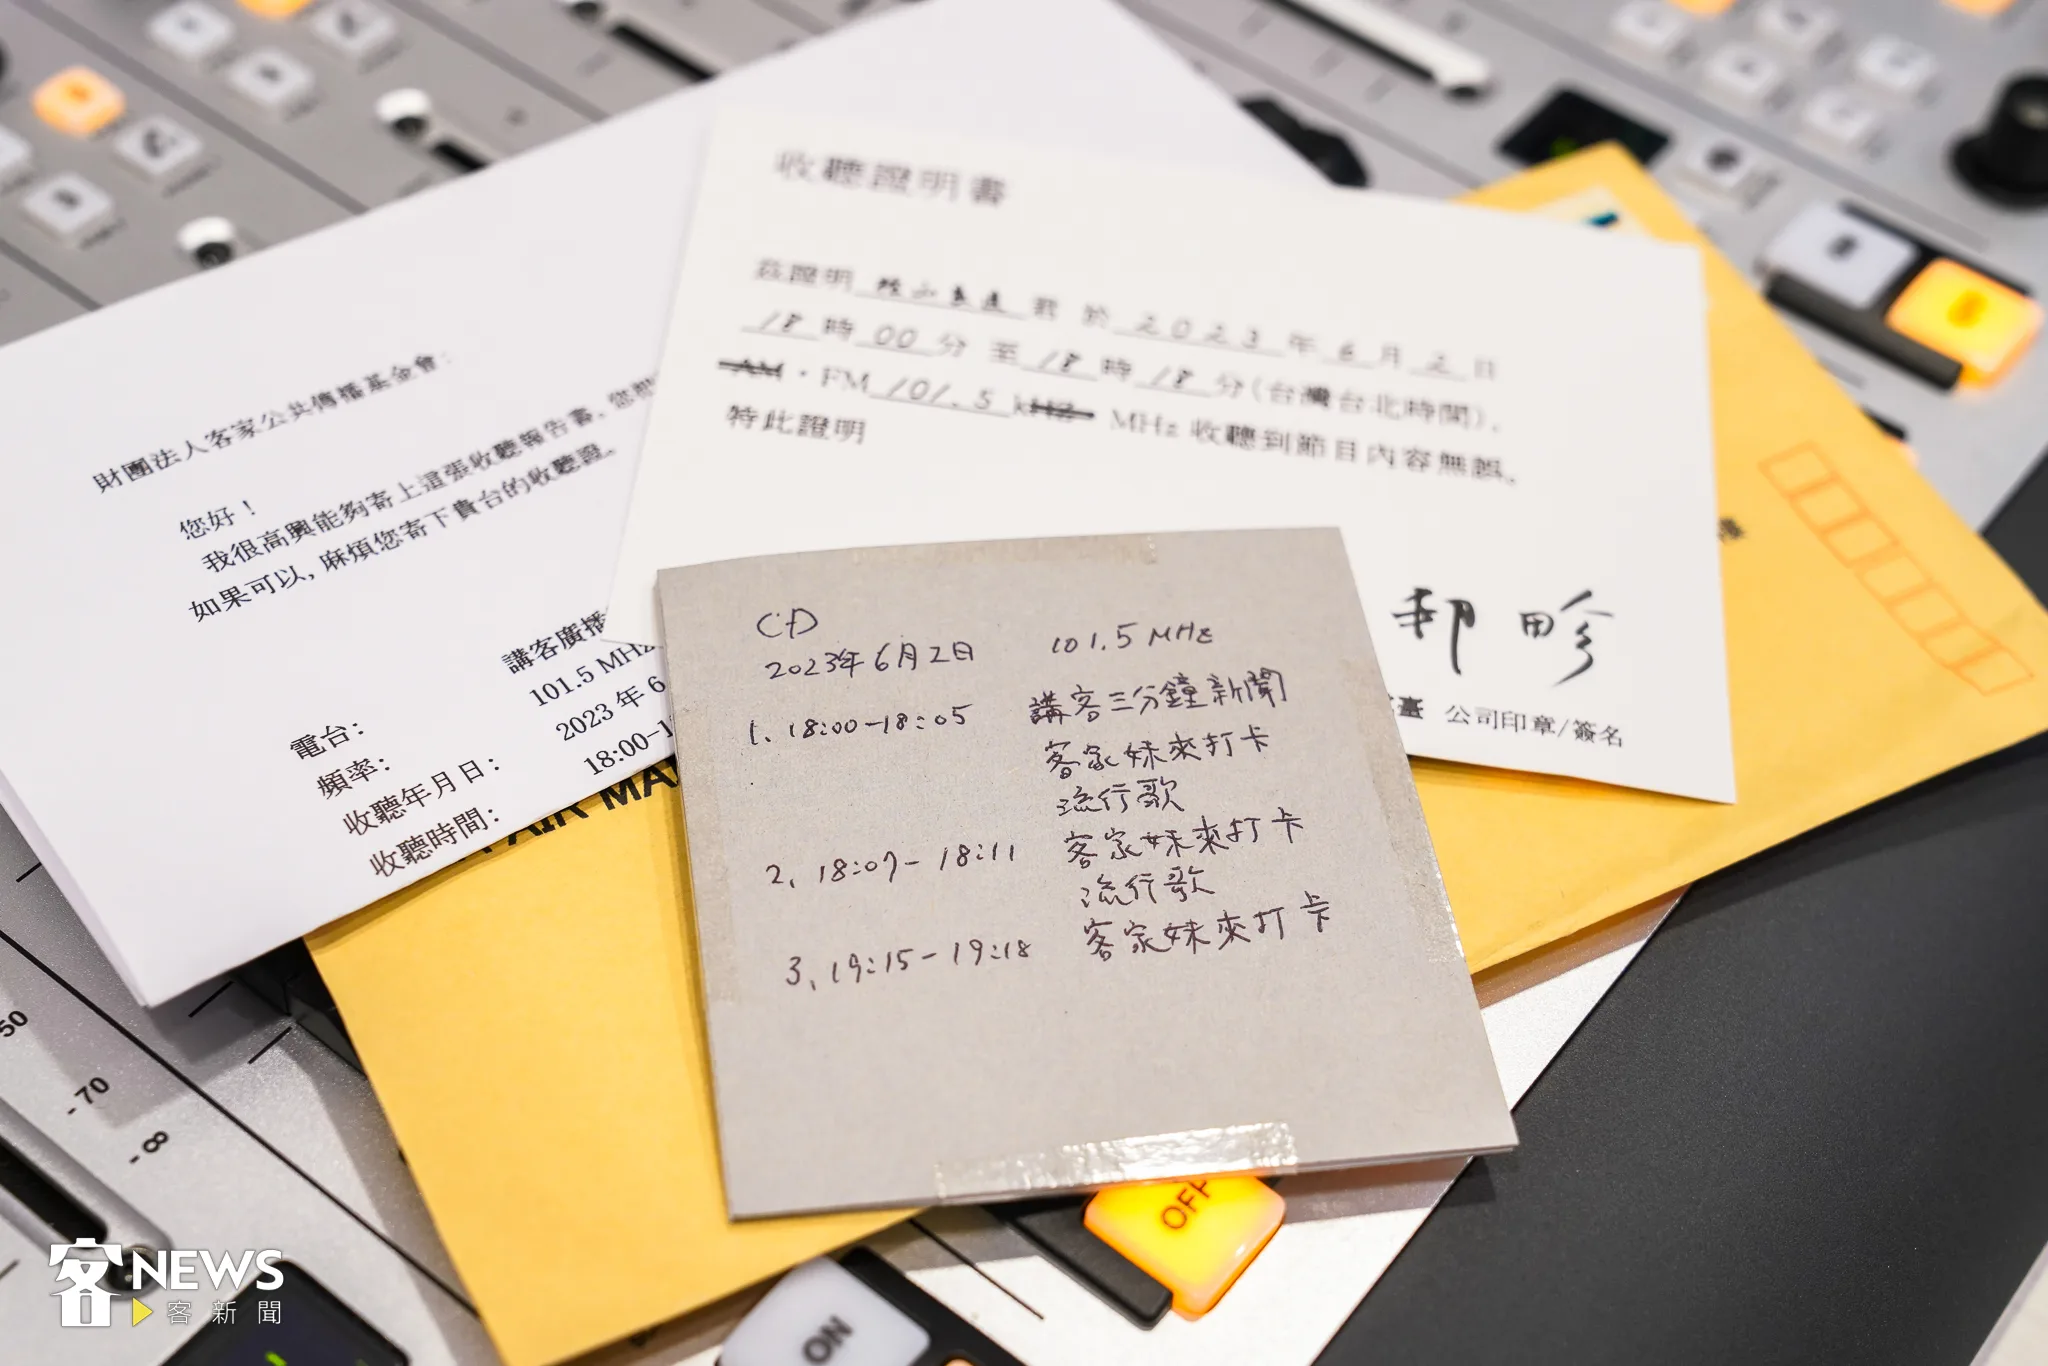 收聽證明書
茲證明 君 於 2023 年 6 月 2 日
18 時 00 分 至 18 時 18 分(台灣台北時間),
AM・FM 101.5 kHz MHz 收聽到節目內容無誤。
特此證明
公司印章/簽名
財團法人客家公共傳播基金會:
您好!
我很高興能夠寄上這張收聽報告書,您
如果可以,麻煩您寄下貴台的收聽證。
電台: 講客廣播
頻率: 101.5 MHz
收聽年月日: 2023 年 6
收聽時間: 18:00-1
AIR MA
CD
2023年6月2日 101.5 MHz
1. 18:00-18:05 講客三分鐘新聞
客家妹來打卡
流行歌
2. 18:07-18:11 客家妹來打卡
流行歌
3. 19:15-19:18 客家妹來打卡
50
-70
-∞
OFF
ON
客NEWS
客新聞